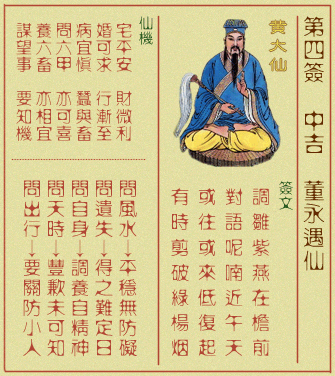 第四簽 中吉 董永遇仙
黃大仙
簽文
調雛紫燕在檐前
對語呢喃近午天
或往或來低復起
有時剪破綠楊烟
仙機
宅平安 財微利
婚可求 行漸至
病宜慎 蠶與畜
問六甲 亦可喜
養六畜 亦相宜
謀望事 要知機
問風水→平穩無防礙
問遺失→得之難定日
問自身→調養自精神
問天時→豐歉未可知
問出行→要關防小人